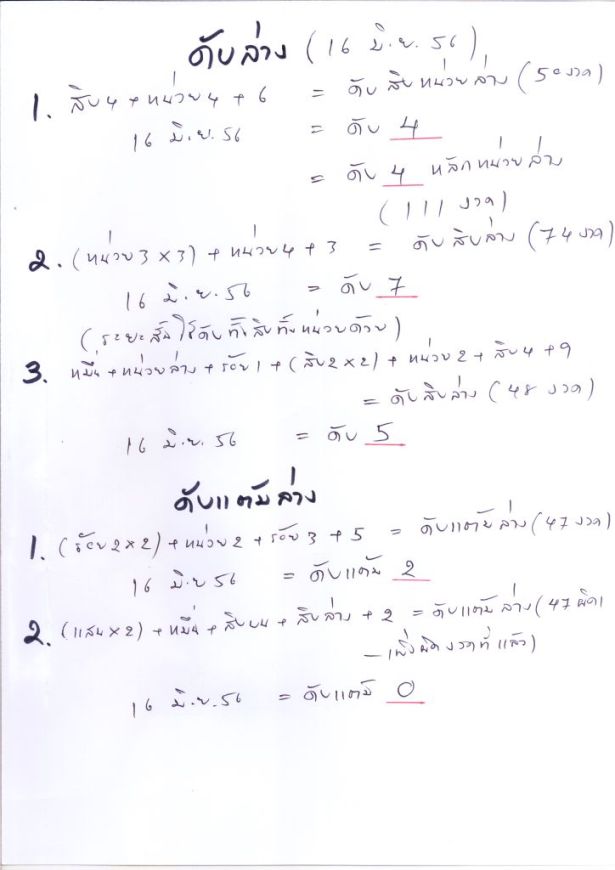 ดับล่าง (16 มิ.ย. 56)
1. สิบ4 + หน่วย4 + 6 = ดับ สิบหน่วยล่าง (50 งวด)
16 มิ.ย. 56 = ดับ 4
= ดับ 4 หลักหน่วยล่าง
(111 งวด)
2. (หน่วย3 x 3) + หน่วย4 + 3 = ดับสิบล่าง (74 งวด)
16 มิ.ย. 56 = ดับ 7
(ระยะสั้น ใช้ดับทั้งสิบทั้งหน่วยด้วย)
3. หมื่น + หน่วยล่าง + ร้อย1 + (สิบ2 x 2) + หน่วย2 + สิบ4 + 9
= ดับสิบล่าง (48 งวด)
16 มิ.ย. 56 = ดับ 5
ดับแต้มล่าง
1. (ร้อย2 x 2) + หน่วย2 + ร้อย3 + 5 = ดับแต้มล่าง (47 งวด)
16 มิ.ย 56 = ดับแต้ม 2
2. (แสน x 2) + หมื่น + สิบบน + สิบล่าง + 2 = ดับแต้มล่าง (47 ผิด1
– เพิ่งผิดงวดที่แล้ว)
16 มิ.ย. 56 = ดับแต้ม 0